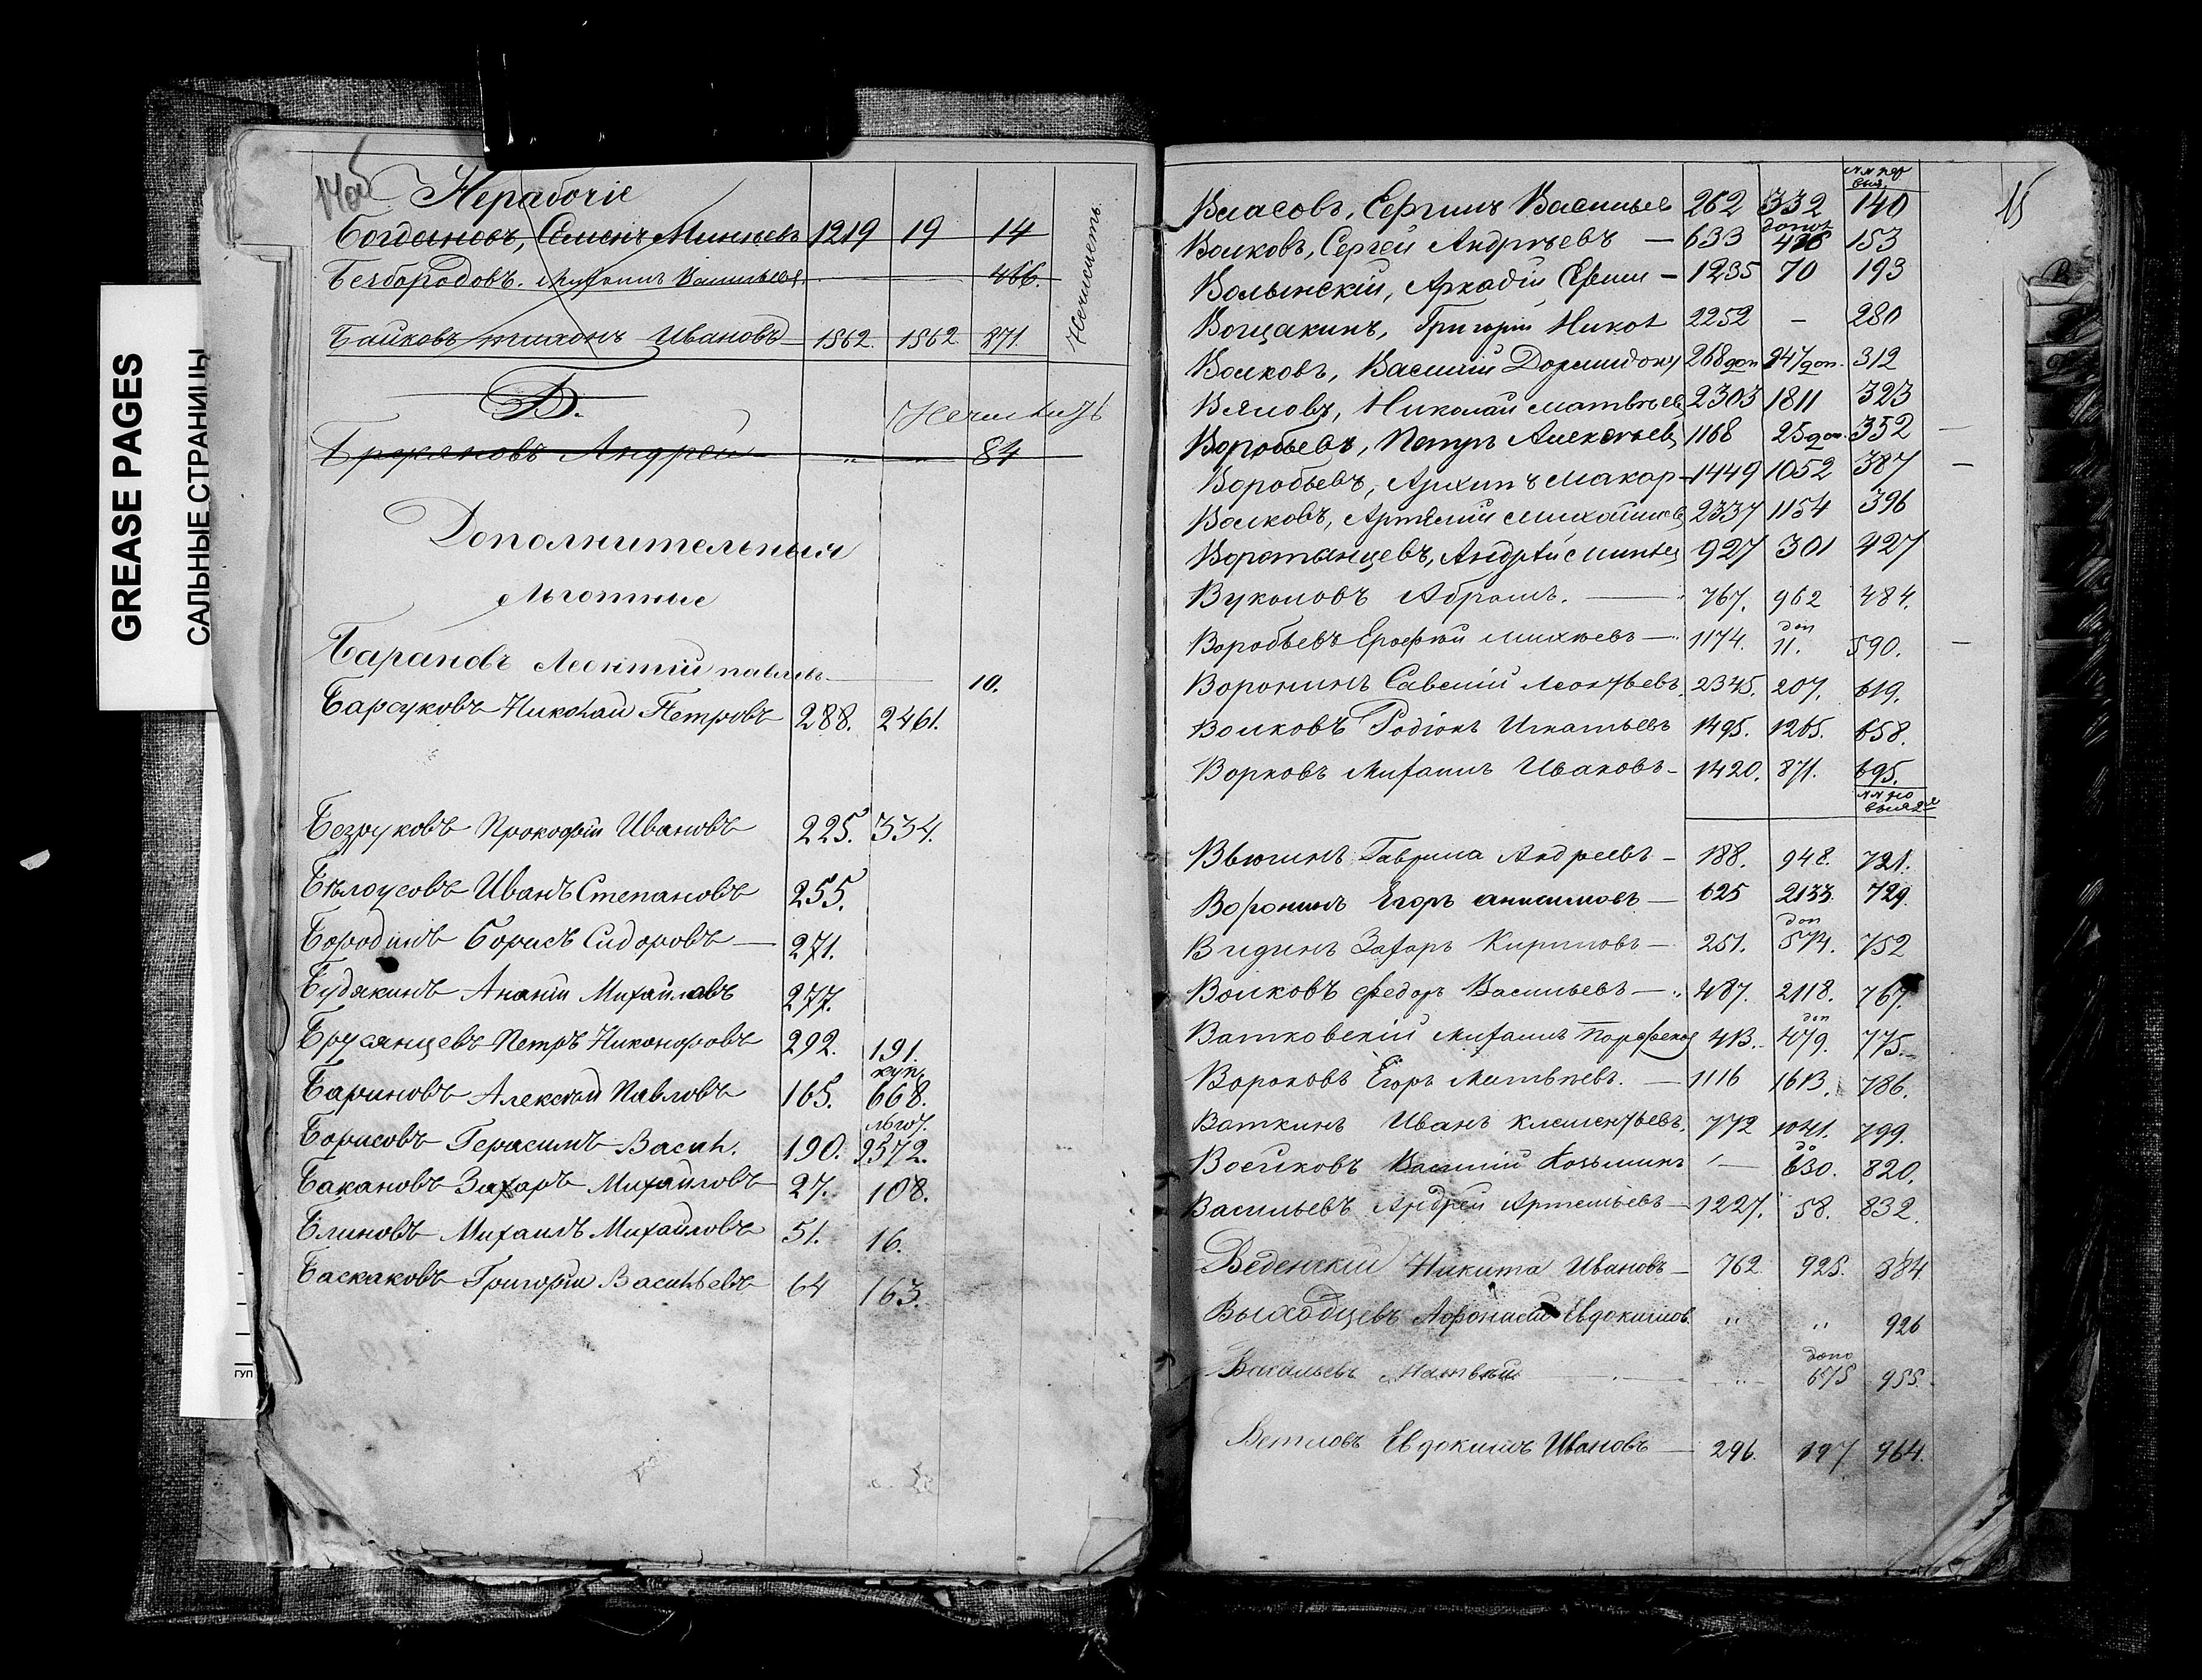 GREASE PAGES
САЛЬНЫЕ СТРАНИЦЫ
14об
Нерабочіе
Богдановъ, Семенъ Минаевъ 1219 19 14
Безбородовъ. Михаилъ Васильевъ. 466.
Байковъ Тихонъ Ивановъ 1562. 1562 271.
Нечислить.
Б.
Андрей 84
Дополнительныя
Льготные
Барановъ Леонтій Павловъ 10.
Барсуковъ Николай Петровъ 288. 2461.
Безруковъ Прокофій Ивановъ 225. 334.
Бѣлоусовъ Иванъ Степановъ 255.
Бородинъ Борисъ Сидоровъ 271.
Будякинъ Ананій Михайловъ 277.
Брусянцевъ Петръ Никоноровъ 292. 191.
куп.
Бариновъ Алексѣй Павловъ 165. 668.
льгот.
Борисовъ Герасимъ Васил. 190. 2572.
Бакановъ Захаръ Михайловъ 27. 108.
Блиновъ Михаилъ Михайловъ 51. 16.
Баскаковъ Григорій Васильевъ 64 163.
ГУП
15
В
Власовъ, Сергѣй Васильев 262 332 140
Волковъ, Сергей Андрѣевъ — 633 153
Волынскій, Аркадій — 1235 70 193
Григорій Никол 2252 - 280
Волковъ, Василій Дормидонт 268 доп 247 доп. 312
Николай Матвѣев 2303 1811 323
Воробьевъ, Петръ Алексѣев 1168 25 доп. 352
Воробьевъ, Архипъ Макар 1449 1052 387
Волковъ, Артемій Михайлов 2337 1154 396
Воротынцевъ, Андрей 927 301 427
Вуколовъ Абрамъ. 767. 962 484.
доп
Воробьевъ Ерофѣй Михѣевъ 1174. 11. 590.
Воронинъ Савелій Леонтьевъ. 2345. 207. 619.
Волковъ Родіонъ Игнатьевъ 1495. 1265. 658.
Ворковъ Михаилъ Ивановъ 1420. 871. 695.
Вьюгинъ Гаврила Андреевъ 188. 948. 721.
Воронинъ Егоръ Анисимовъ 625 2133. 729.
доп
Видинъ Захаръ Кириловъ 251. 574. 752
Волковъ Федоръ Васильевъ 487. 2118. 767.
доп
Ватковскій Михаилъ 413. 479. 775.
Вороновъ Егоръ Матвѣевъ. 1116 1613. 786.
Ваткинъ Иванъ Клементьевъ. 772 1041. 799.
до
Воейковъ Василій Козьминъ 630. 820.
Васильевъ Андрей Артемьевъ 1227. 58. 832.
Веденскій Никита Ивановъ 762 925. 884.
Выходцевъ Афонасій Евдокимов. " " 926
допо
Васильевъ Матвѣй 675 955.
Ветловъ Евдокимъ Ивановъ 296. 197 964.